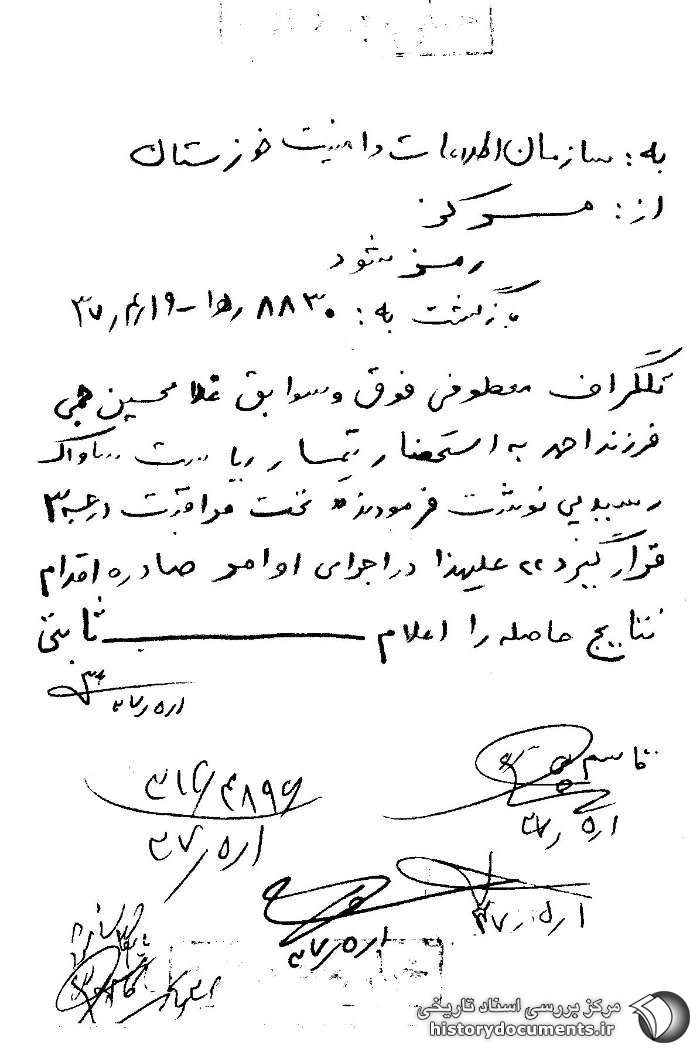 به: سازمان اطلاعات وامنیت خوزستان
از: مرکز
رمز شود
بازگشت به: ۸۸۳۰
تلگراف معطوفی فوق وسوابق غلامحسین
فرزند احمد به استحضار تیمسار ریاست ساواک
رسید پی نوشت فرمودند «تحت مراقبت درجه ۳
قرار گیرد» علیهذا در اجرای اوامر صادره اقدام
نتایج حاصله را اعلام ثابتی
۳۷/۵/۱
قاسم
۳۱۶/۴۸۹۶
۳۷/۵/۱
۳۷/۵/۱
۳۷/۵/۱
۳۷/۵/۱
مرکز بررسی اسناد تاریخی
historydocuments.ir